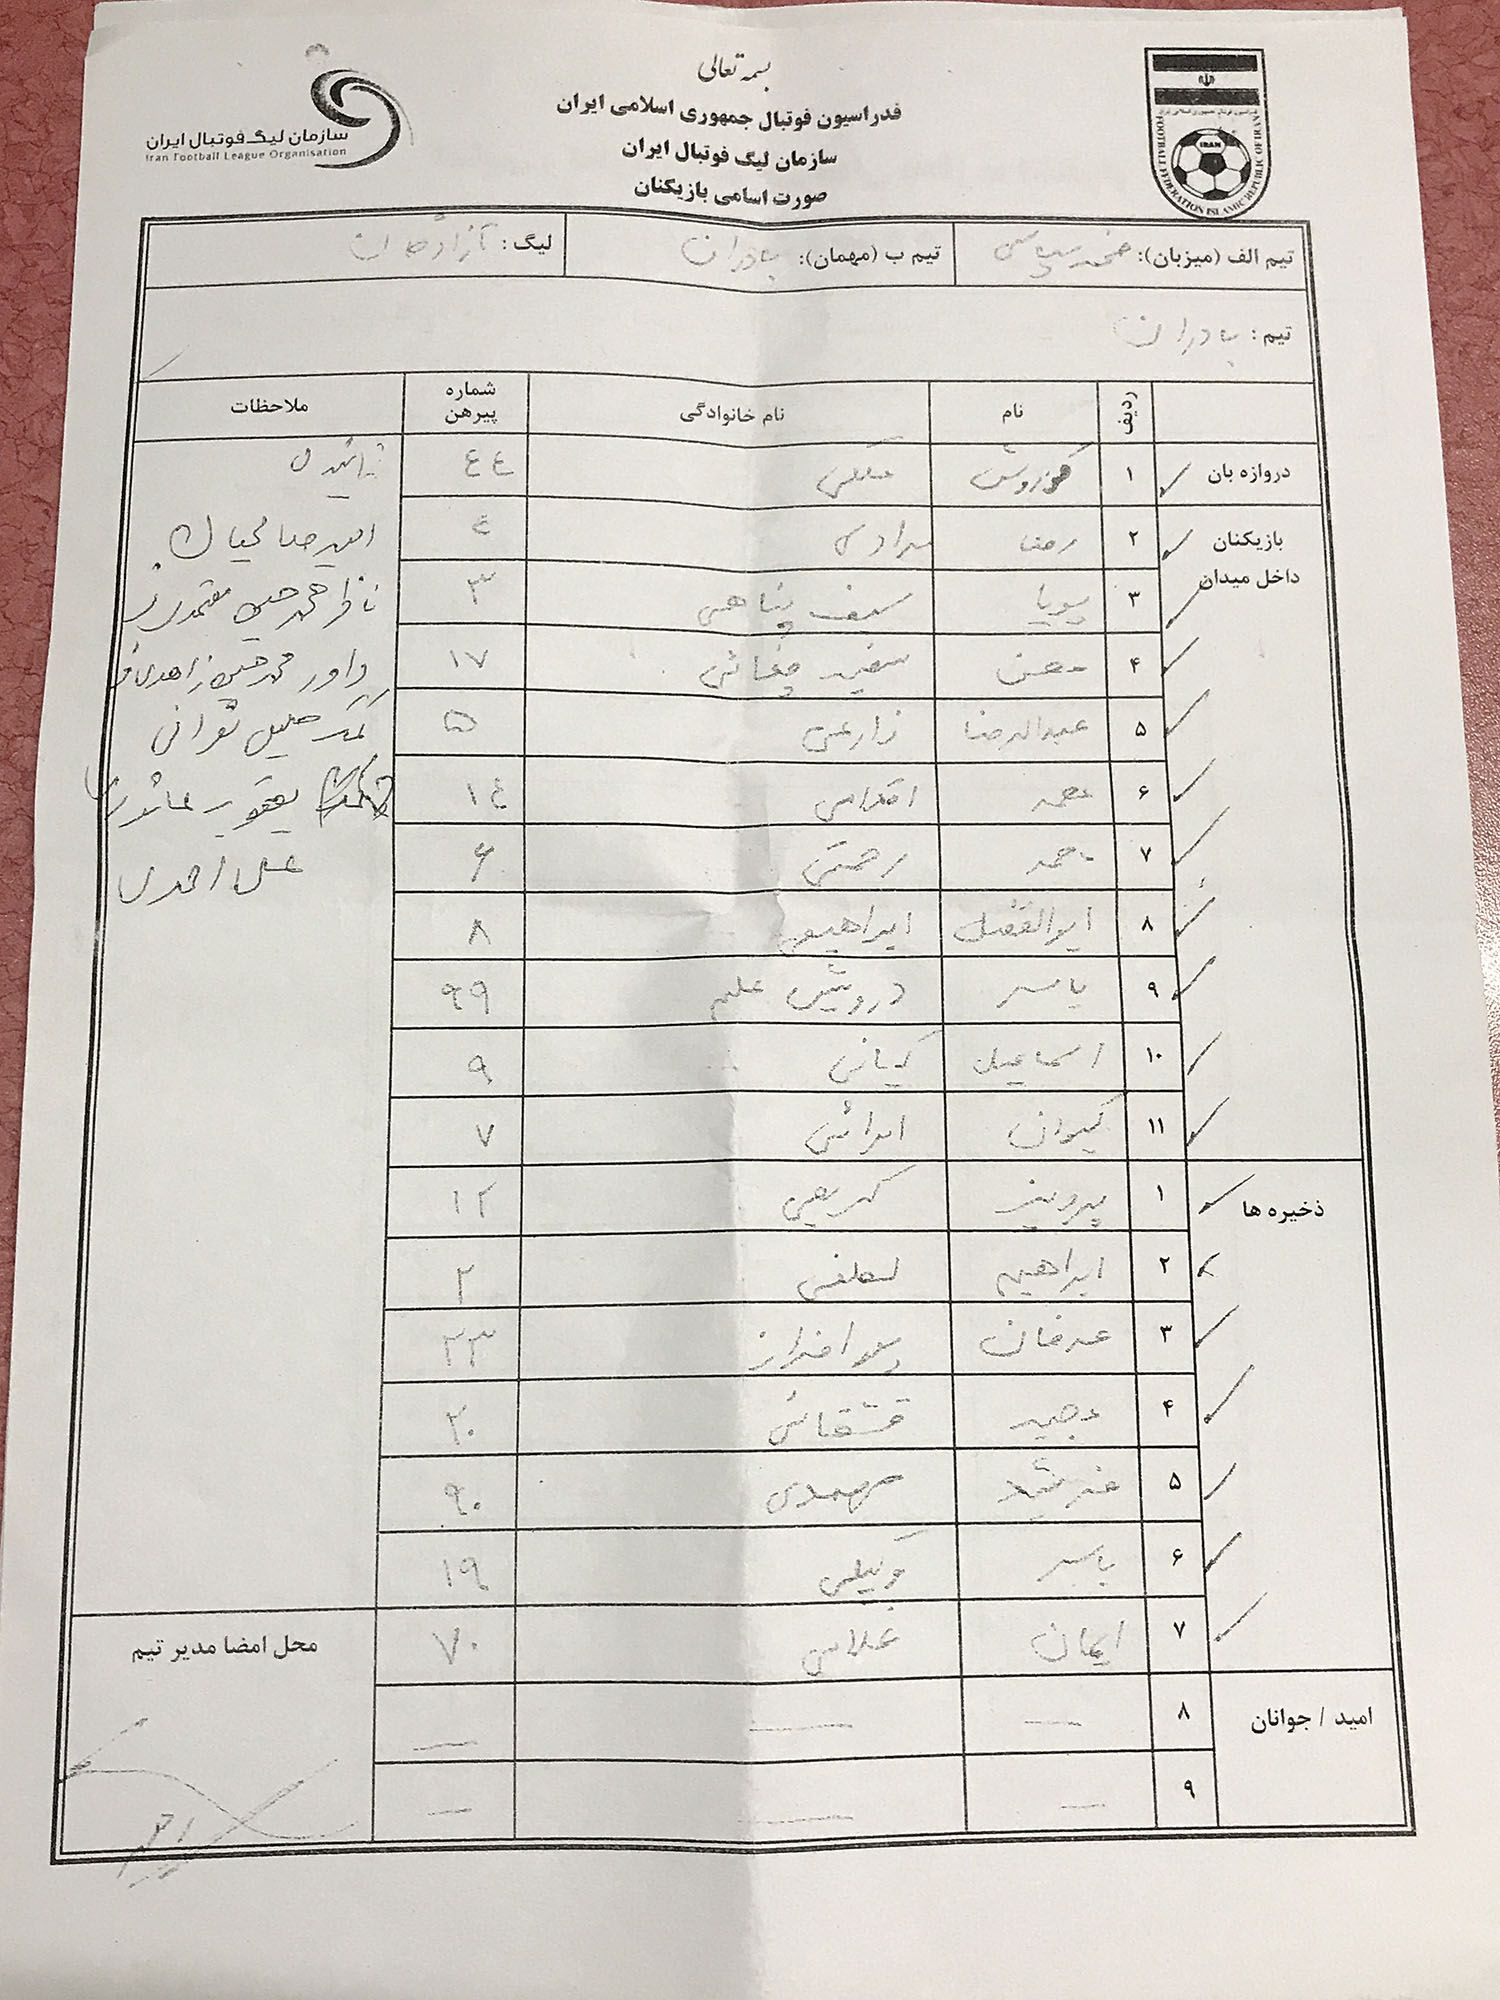 بسمه تعالی
فدراسیون فوتبال جمهوری اسلامی ایران
سازمان لیگ فوتبال ایران
صورت اسامی بازیکنان
سازمان لیگ فوتبال ایران
Iran Football League Organisation
IRAN
FOOTBALL FEDERATION ISLAMIC REPUBLIC OF IRAN
تیم الف (میزبان): تیم ب (مهمان): بادران لیگ: آزادگان
تیم: بادران
ردیف نام نام خانوادگی شماره پیرهن ملاحظات
دروازه بان ۱ کوروش ملکی ٤٤
بازیکنان داخل میدان ۲ رضا مرادی ٤
۳ پویا سیف پناهی ۳
۴ محسن سفید چغائی ۱۷
۵ عبدالرضا زارعی ۵
۶ محمد اقدامی ۱٤
۷ احمد رحمتی ۶
۸ ابوالفضل ابراهیمی ۸
۹ یاسر درویش علی ۹۹
۱۰ اسماعیل کیانی ۹
۱۱ کیوان امرائی ۷
ذخیره ها ۱ پرویز کریمی ۱۲
۲ ابراهیم لطفی ۲
۳ عرفان پورافراز ۲۳
۴ مجید قشقائی ۲۰
۵ فرشید مهمدی ۹۰
۶ یاسر ۱۹
۷ ایمان ۷۰
امید / جوانان ۸ — — —
۹ — — —
امیرصالحیان
یعقوب
علی احمدی
محل امضا مدیر تیم